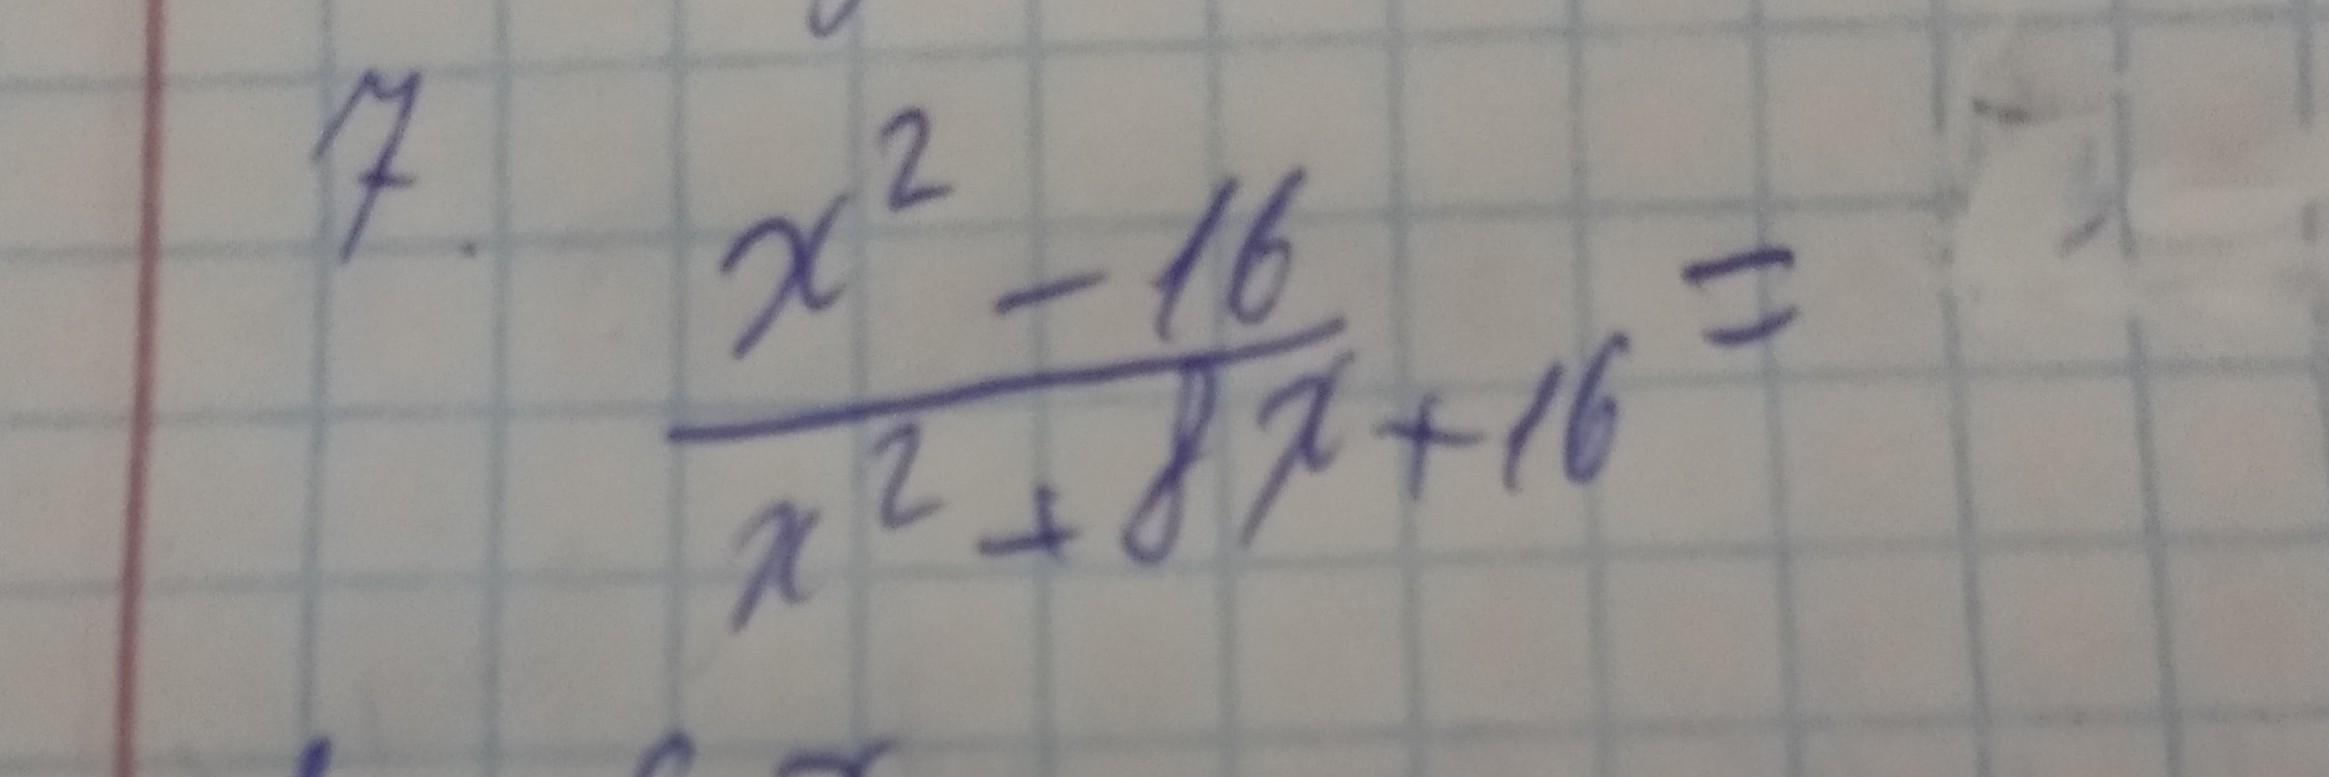 7. x² - 16 / x² + 8x + 16 =